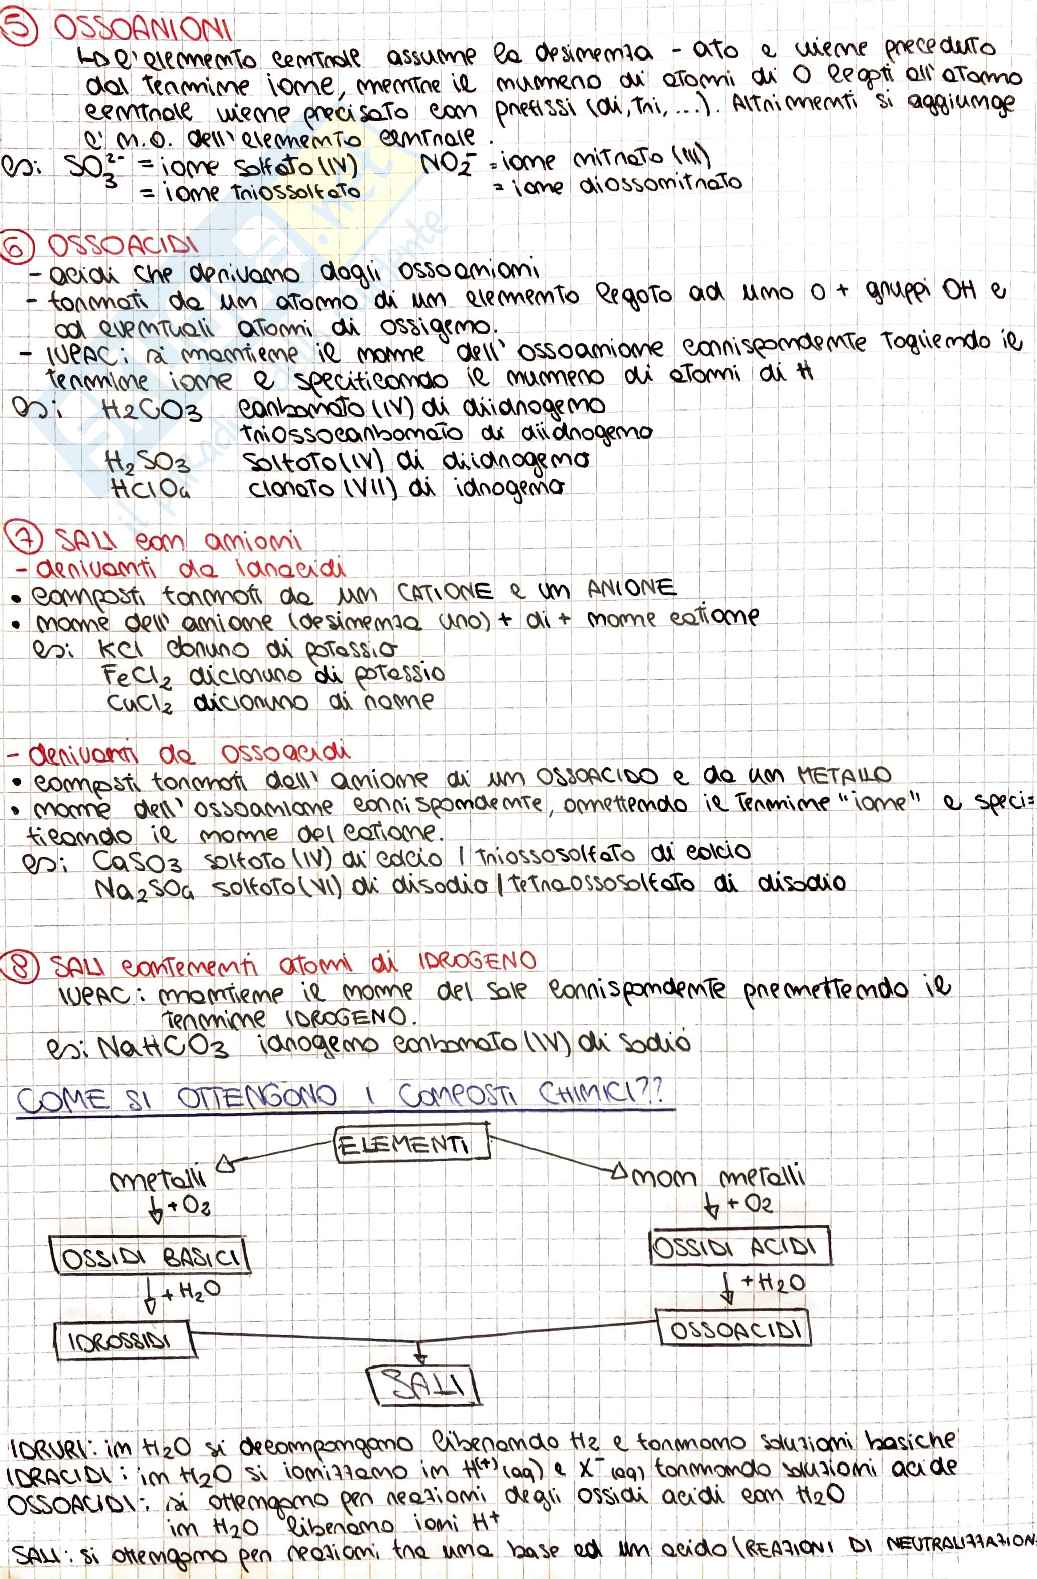 5 OSSOANIONI
↳ l'elemento centrale assume la desinenza -ato e viene preceduto
dal termine ione, mentre il numero di atomi di O legati all'atomo
centrale viene precisato con prefissi (di, tri, ...). Altrimenti si aggiunge
il n.o. dell'elemento centrale.
es: SO₃²⁻ = ione solfato (IV) NO₂⁻ = ione nitrato (III)
= ione triossolfato = ione diossonitrato
6 OSSOACIDI
- acidi che derivano dagli ossoanioni
- formati da un atomo di un elemento legato ad uno O + gruppi OH e
ad eventuali atomi di ossigeno.
- IUPAC: si mantiene il nome dell'ossoanione corrispondente togliendo il
termine ione e specificando il numero di atomi di H
es: H₂CO₃ carbonato (IV) di diidrogeno
triossocarbonato di diidrogeno
H₂SO₃ solfato (IV) di diidrogeno
HClO₄ clorato (VII) di idrogeno
7 SALI con anioni
- derivanti da idracidi
• composti formati da un CATIONE e un ANIONE
• nome dell'anione (desinenza uro) + di + nome catione
es: KCl cloruro di potassio
FeCl₂ dicloruro di potassio
CuCl₂ dicloruro di rame
- derivanti da ossoacidi
• composti formati dall'anione di un OSSOACIDO e da un METALLO
• nome dell'ossoanione corrispondente, omettendo il termine "ione" e speci=
ficando il nome del catione.
es: CaSO₃ solfato (IV) di calcio / triossosolfato di calcio
Na₂SO₄ solfato (VI) di disodio / tetraossosolfato di disodio
8 SALI contenenti atomi di IDROGENO
IUPAC: mantiene il nome del sale corrispondente premettendo il
termine IDROGENO.
es: NaHCO₃ idrogeno carbonato (IV) di sodio
COME SI OTTENGONO I COMPOSTI CHIMICI??
ELEMENTI
metalli non metalli
↓ + O₂ ↓ + O₂
OSSIDI BASICI OSSIDI ACIDI
↓ + H₂O ↓ + H₂O
IDROSSIDI OSSOACIDI
SALI
IDRURI: in H₂O si decompongono liberando H₂ e formano soluzioni basiche
IDRACIDI: in H₂O si ionizzano in H⁽⁺⁾(aq) e X⁻(aq) formando soluzioni acide
OSSOACIDI: si ottengono per reazioni degli ossidi acidi con H₂O
in H₂O liberano ioni H⁺
SALI: si ottengono per reazioni tra una base ed un acido (REAZIONI DI NEUTRALIZZAZION